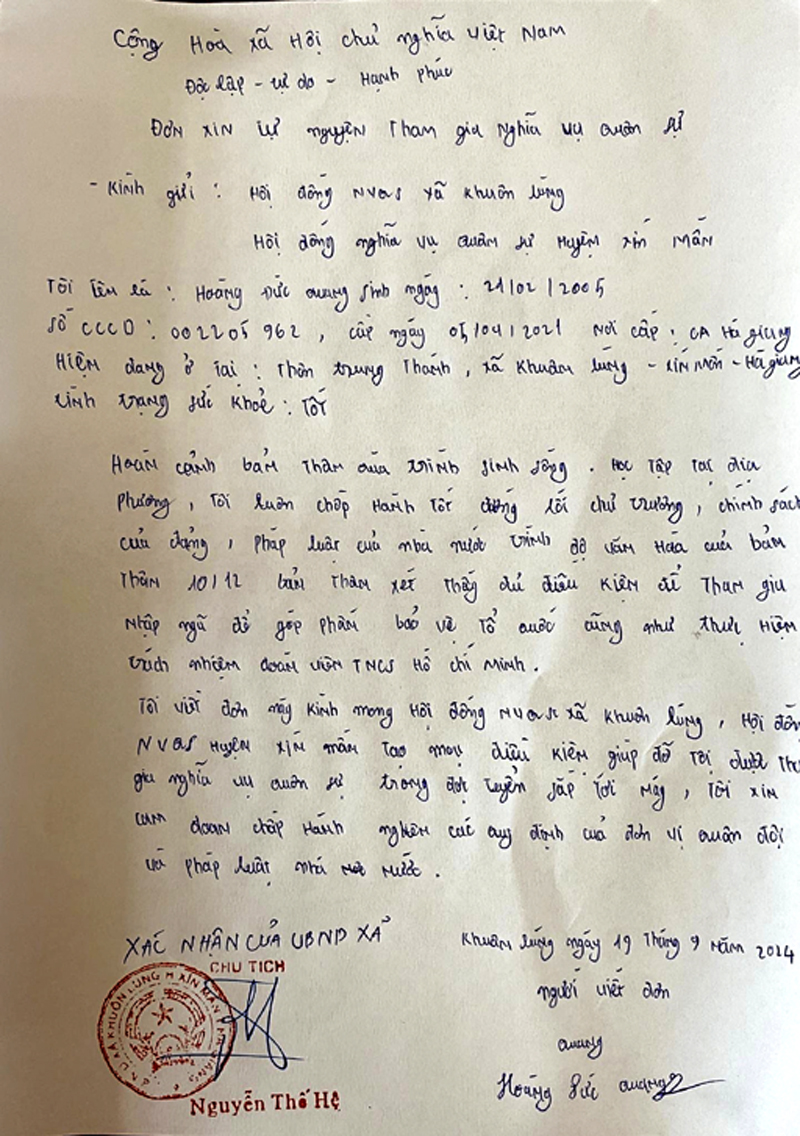 Cộng Hoà xã Hội chủ nghĩa Việt Nam
Độc lập - tự do - Hạnh phúc
Đơn xin tự nguyện Tham gia Nghĩa vụ quân sự
- Kính gửi : Hội đồng NVQS xã Khuôn lùng
Hội đồng nghĩa vụ quân sự Huyện xín mần
Tôi tên là : Hoàng Đức quang sinh ngày : 21/02/2005
Số CCCD : 002205962, cấp ngày 05/04/2021 Nơi cấp : CA Hà giang
Hiện đang ở tại : Thôn trung Thành, xã Khuôn lùng - xín mần - Hà giang
tình trạng sức khoẻ : Tốt
Hoàn cảnh bản thân của trình sinh sống. Học tập tại địa
phương, Tôi luôn chấp Hành tốt đường lối chủ trương, chính sách
của đảng, pháp luật của nhà nước trình độ văn Hóa của bản
thân 10/12 bản thân xét thấy đủ điều kiện để Tham gia
nhập ngũ để góp phần bảo vệ Tổ quốc cũng như thực Hiện
trách nhiệm đoàn viên TNCS Hồ chí Minh.
Tôi viết đơn này kính mong Hội đồng NVQS xã Khuôn lùng, Hội đồng
NVQS Huyện xín mần tạo mọi điều kiện giúp đỡ tôi được Th
gia nghĩa vụ quân sự trong đợt tuyển sắp tới này, Tôi xin
cam đoan chấp Hành nghiêm các quy định của đơn vị quân đội
và pháp luật nhà nước.
XÁC NHẬN CỦA UBND XÃ
Khuôn lùng ngày 19 Tháng 9 năm 2024
CHỦ TỊCH
người viết đơn
quang
Nguyễn Thế Hệ
Hoàng Đức quang